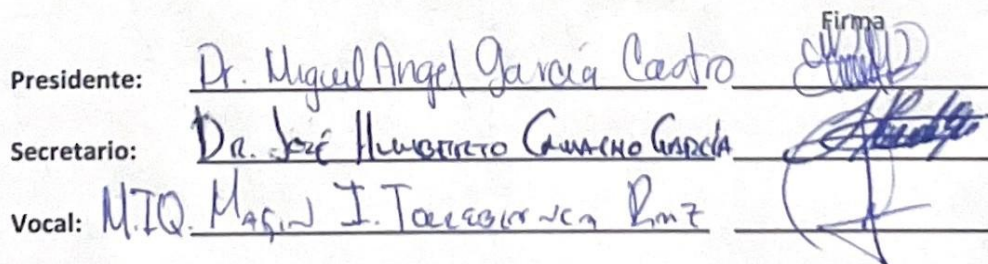 Firma
Presidente: Dr. Miguel Angel García Castro
Secretario: DR. José HUMBERTO CAMACHO GARCÍA
Vocal: M.I.Q. MAGIN I. TORREBLANCA